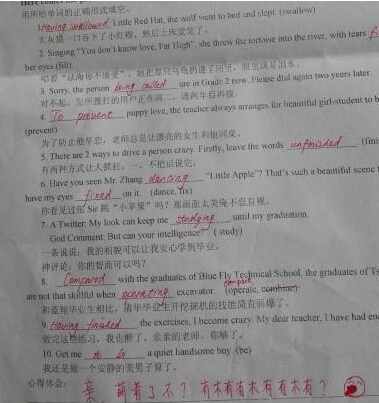 用所给单词的正确形式填空。
1. Having swallowed Little Red Hat, the wolf went to bed and slept. (swallow)
大灰狼一口吞下了小红帽，然后上床觉觉了。
2. Singing "You don't know love, Fat High", she threw the tortoise into the river, with tears
her eyes.(fill)
3. Sorry, the person being called are in Grade 2 now. Please dial again two years later.
对不起，您所拨打的用户正在高二，请两年后再拨。
4. To prevent puppy love, the teacher always arranges for beautiful girl-student to b
(prevent)
为了防止他早恋，老师总是让漂亮的女生和他同桌。
5. There are 2 ways to drive a person crazy. Firstly, leave the words unfinished (fini
有两种方式让人抓狂。一，不把话说完。
6. Have you seen Mr. Zhang dancing "Little Apple"? That's such a beautiful scene t
have my eyes fixed on it. (dance, fix)
你看见过张 Sir 跳"小苹果"吗？那画面太美俺不忍直视。
7. A Twitter: My look can keep me studying until my graduation.
God Comment: But can your intelligence? ( study)
一条说说：我的相貌可以让我安心学到毕业。
神评论：你的智商可以吗？
8. Compared with the graduates of Blue Fly Technical School, the graduates of T
are not that skillful when operating excavator (operate, combine) compare
和蓝翔毕业生相比，清华毕业生开挖掘机的技能简直弱爆了。
9. Having finished the exercises, I become crazy. My dear teacher, I have had en
做完这些练习，我也醉了。亲亲的老师，你够了。
10. Get me to be a quiet handsome boy. (be)
我还是做一个安静的美男子算了。
心得体会： 亲 萌着了不？有木有有木有有木有？